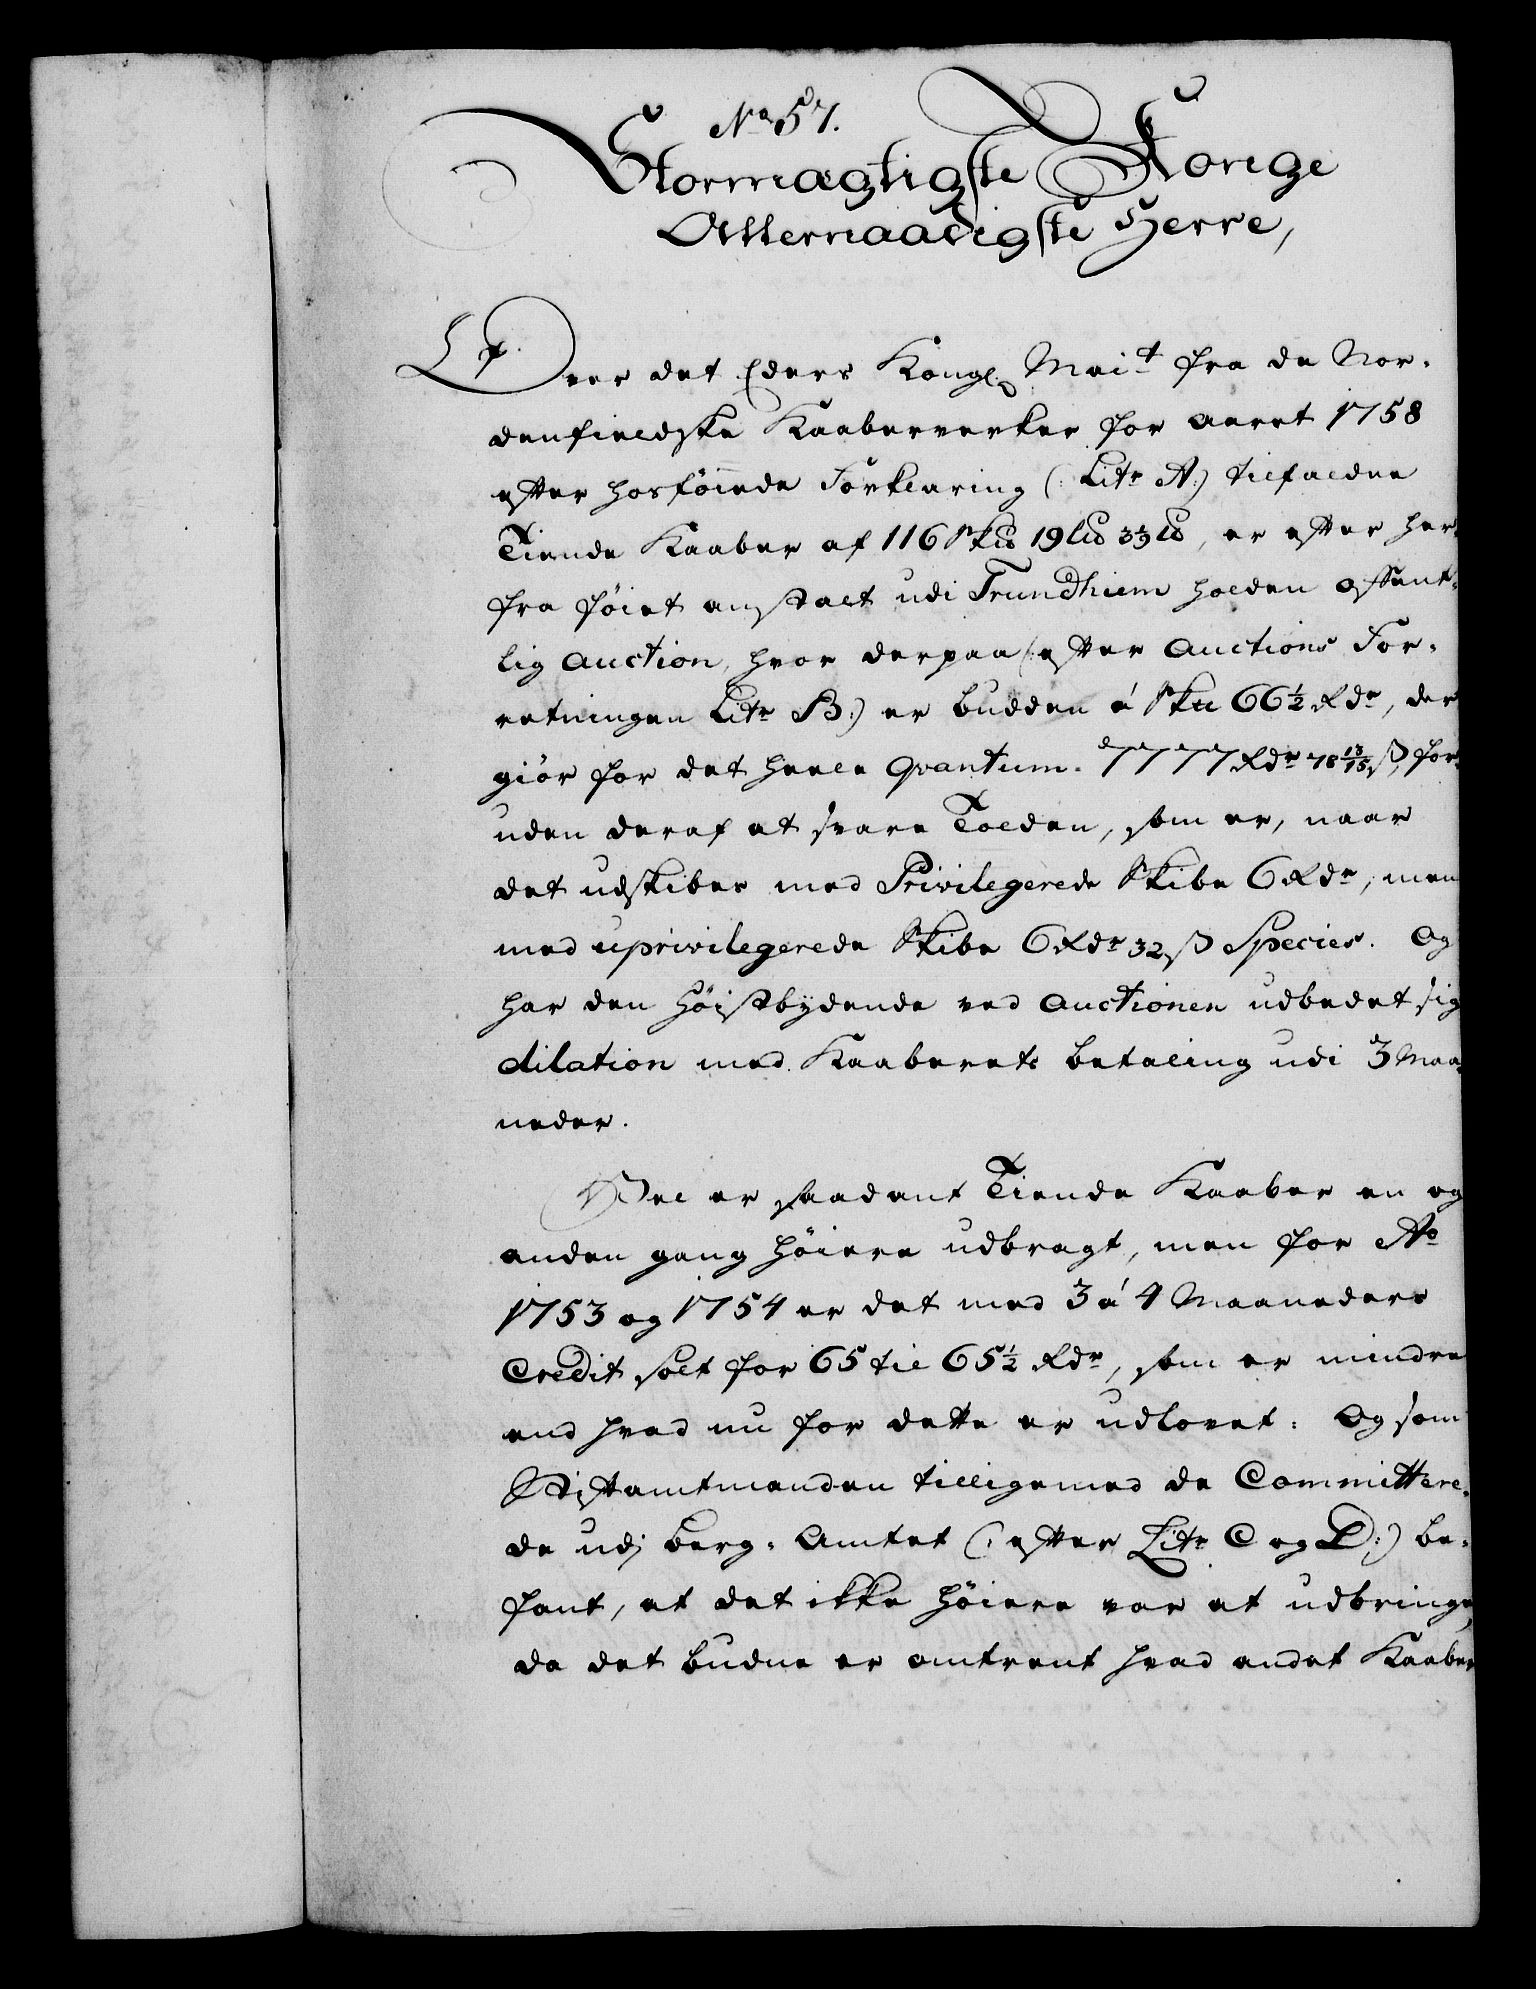 No 57.
Stormægtigste Konge
Allernaadigste Herre,
Over det Eders Kongl. Mait fra de Nor-
denfieldske Kaaberverker for aaret 1758
efter hosføiede Forklaring (: Litr A:) tilfaldne
Tiende Kaaber af 116 Sk℔ 19 L℔ 3⅓ ℔, er efter her-
fra føiet anstalt udi Trundhiem holden offent-
lig Auction, hvor derpaa (: efter Auctions For-
retningen Litr B:) er budden á Sk℔ 66½ Rdr, der
giør for det heele qvantum. 7777 Rdr 78 13/15 ß, for-
uden deraf at svare Tolden, som er, naar
det udskibes med Privilegerede Skibe 6 Rdr, men
med uprivilegerede Skibe 6 Rdr 32 ß Species. Og
har den Høistbydende ved Auctionen udbedet sig
dilation med Kaaberets betaling udi 3 Maa-
neder.
Vel er saadant Tiende Kaaber en og
anden gang høiere udbragt, men for Ao
1753 og 1754 er det med 3 á 4 Maaneders
Credit solt for 65 til 65½ Rdr, som er mindre
end hvad nu for dette er udlovet: Og som
Stiftamtmanden tilligemed de Committere-
de udj Berg-Amtet (: efter Litr C og D:) be-
fant, at det ikke høiere var at udbringe,
da det budne er omtrent hvad andet Kaaber